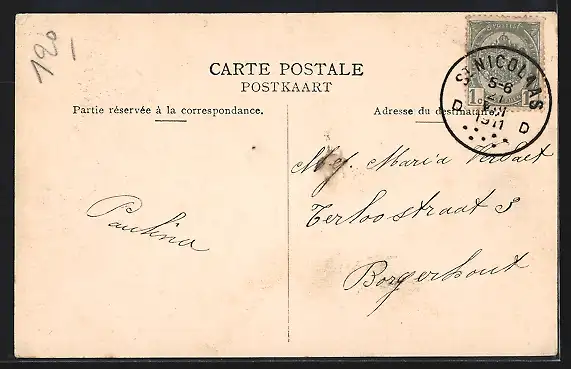 120
CARTE POSTALE
POSTKAART
Partie réservée à la correspondance.
Adresse du destinataire.
ST NICOLAAS
5-6
21
1911
D D
1 1
Mej. Maria Verbaet
Terloostraat 3
Borgerhout
Paulina